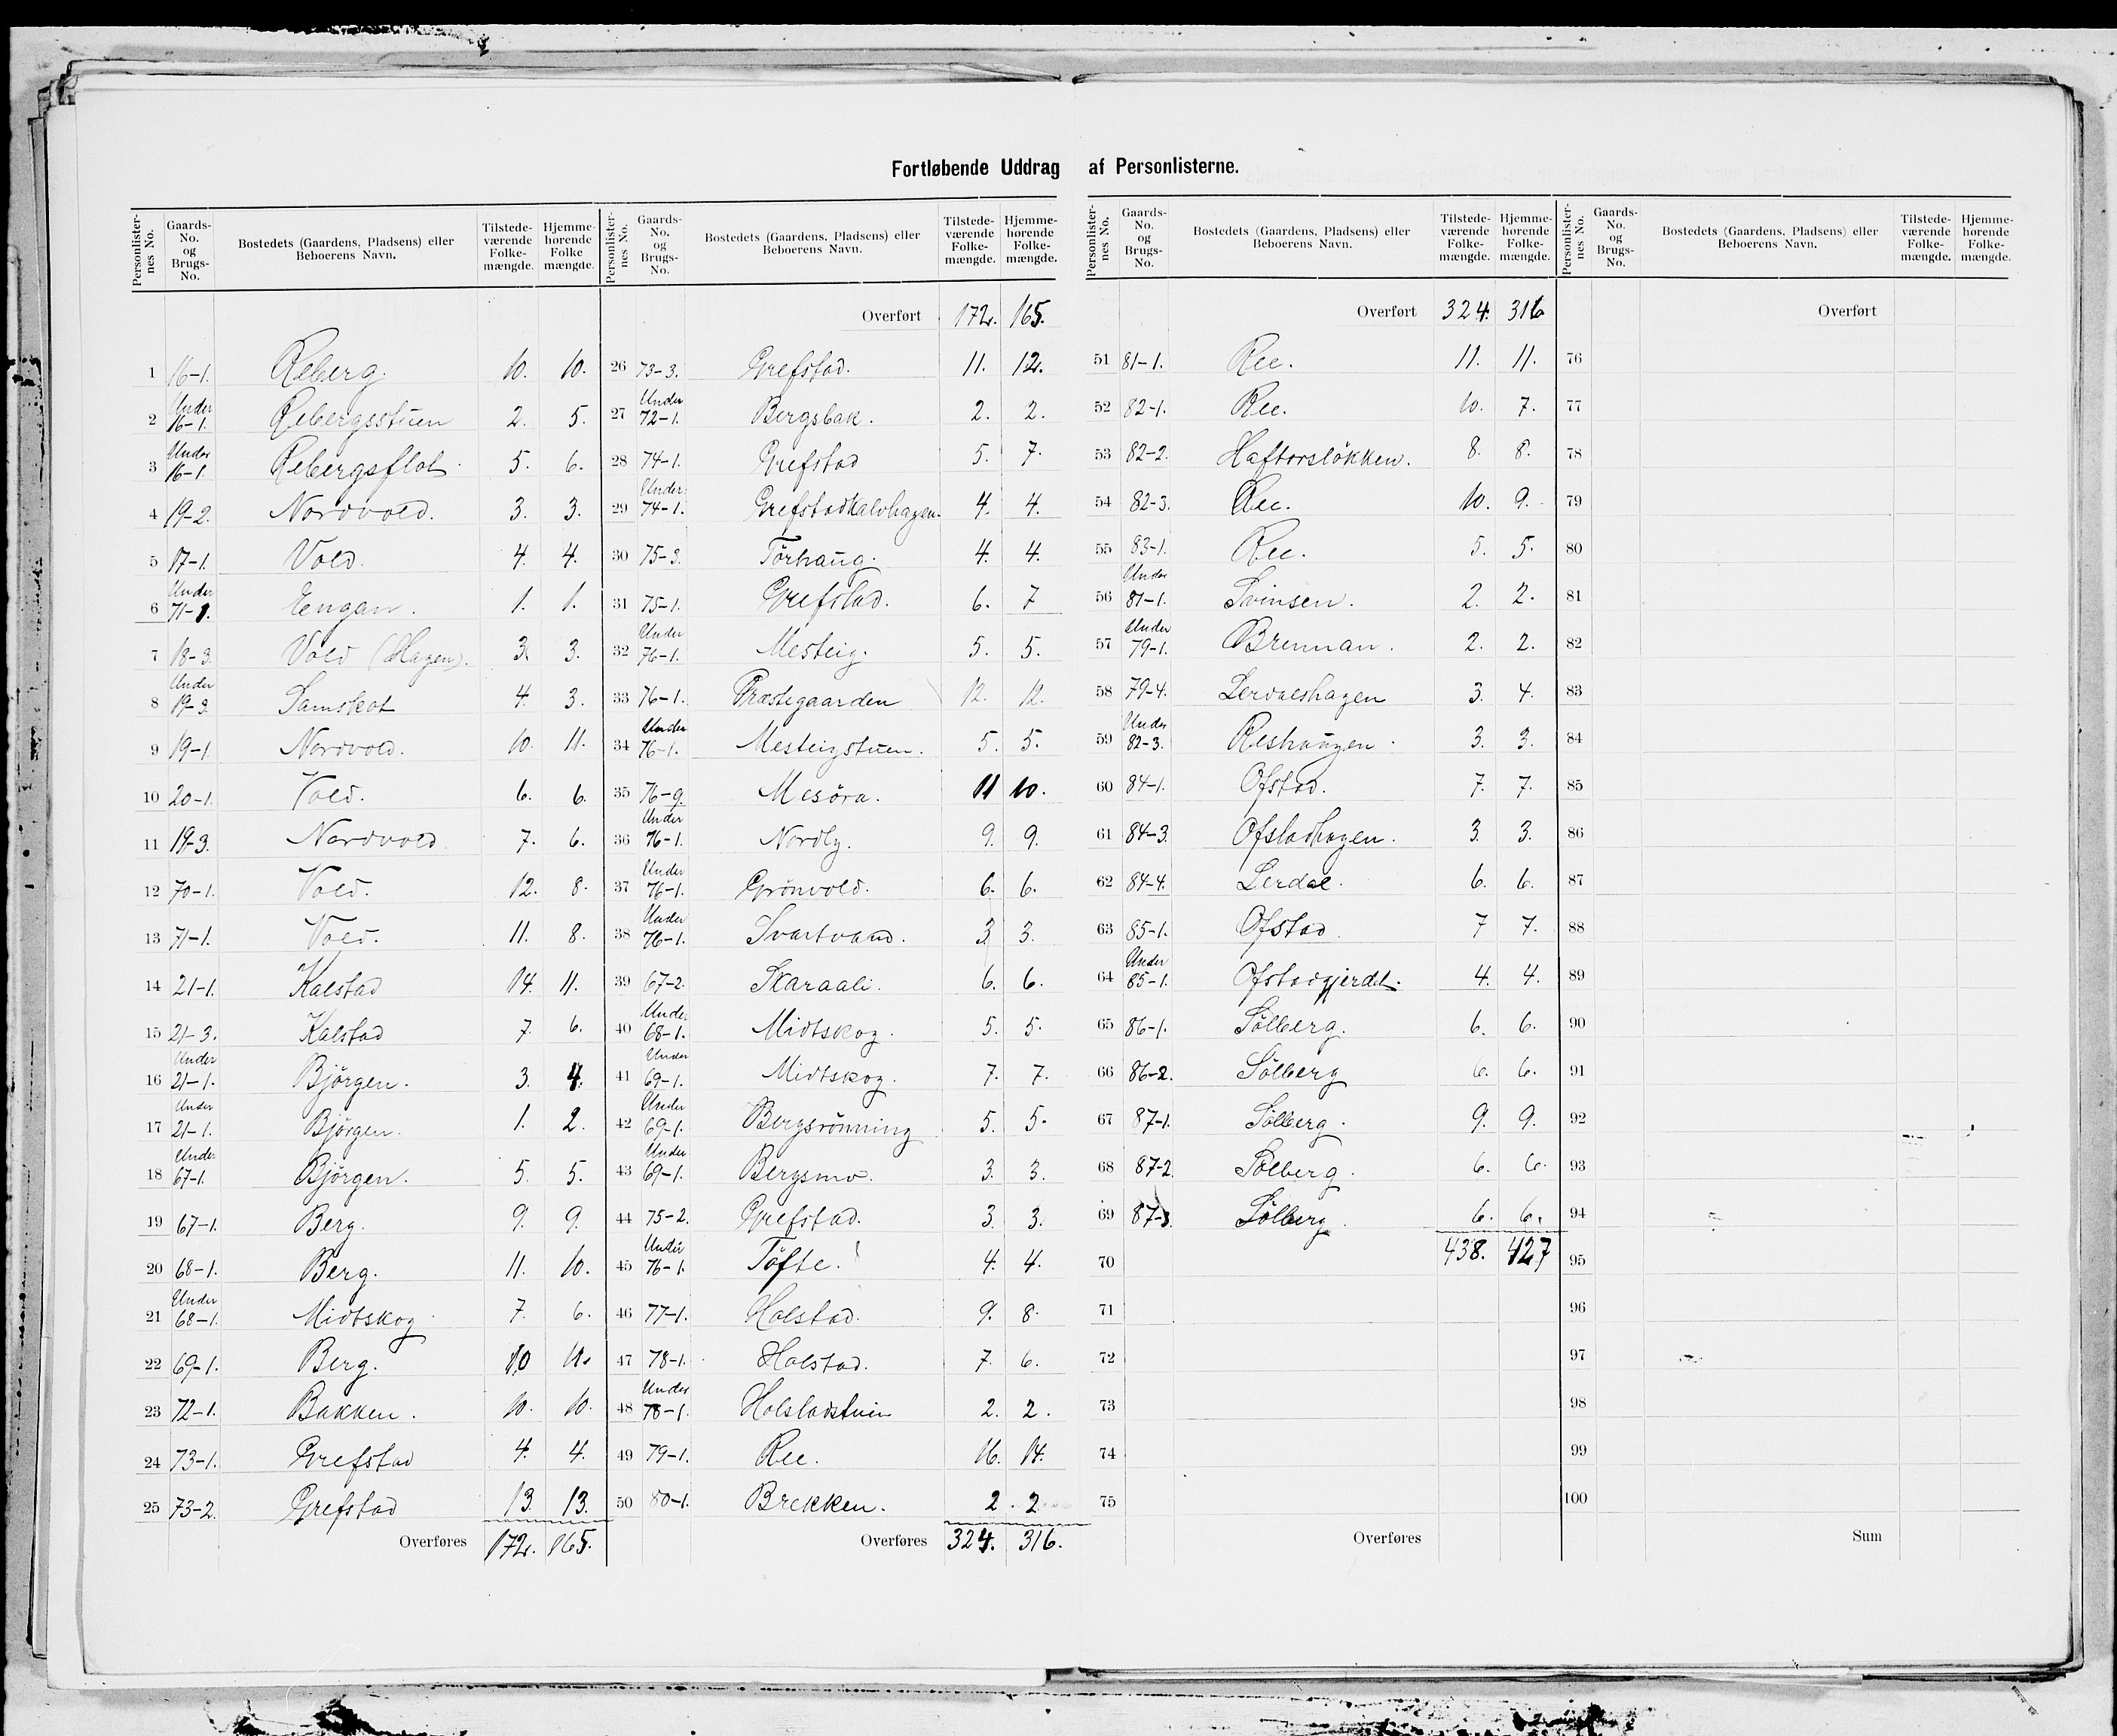 Fortløbende Uddrag af Personlisterne.
Personlisternes No. Gaards-No. og Brugs-No. Bostedets (Gaardens, Pladsens) eller Beboerens Navn. Tilstedeværende Folkemængde. Hjemmehørende Folkemængde.
1 16-1. Reberg. 10. 10.
2 Under 16-1. Rebergsstuen 2. 5.
3 Under 16-1. Rebergsflot 5. 6.
4 19-2. Nordvold. 3. 3.
5 17-1. Vold. 4. 4.
6 Under 71-1. Eengan. 1. 1.
7 18-3. Vold (Hagen). 3. 3.
8 Under 19-3. Samskot 4. 3.
9 19-1. Nordvold. 10. 11.
10 20-1. Vold. 6. 6.
11 19-3. Nordvold 7. 6.
12 70-1. Vold. 12. 8.
13 71-1. Vold. 11. 8.
14 21-1. Kalstad 14. 11.
15 21-3. Kalstad 7. 6.
16 Under 21-1. Bjørgen. 3. 4.
17 Under 21-1. Bjørgen. 1. 2.
18 Under 67-1. Bjørgen. 5. 5.
19 67-1. Berg. 9. 9.
20 68-1. Berg. 11. 10.
21 Under 68-1. Midtskog 7. 6.
22 69-1. Berg. 10 11.
23 72-1. Bakken. 10. 10.
24 73-1. Grefstad 4. 4.
25 73-2. Grefstad 13. 13.
Overføres 172. 165.
Personlisternes No. Gaards-No. og Brugs-No. Bostedets (Gaardens, Pladsens) eller Beboerens Navn. Tilstedeværende Folkemængde. Hjemmehørende Folkemængde.
Overført 172. 165.
26 73-3. Grefstad. 11. 12.
27 Under 72-1. Bergsbak. 2. 2.
28 74-1. Grefstad 5. 7.
29 Under 74-1. Grefstadkalvhagen. 4. 4.
30 75-3. Tørhaug. 4. 4.
31 75-1. Grefstad. 6. 7
32 Under 76-1. Mesteig. 5. 5.
33 76-1. Præstegaarden 12. 12.
34 Under 76-1. Mesteigstuen. 5. 5.
35 76-9. Mesøra. 11 10.
36 Under 76-1. Nordly. 9. 9.
37 Under 76-1. Grønvold. 6. 6.
38 Under 76-1. Svartvand. 3 3.
39 67-2. Skaraali. 6. 6.
40 Under 68-1. Midtskog. 5. 5.
41 Under 69-1. Midtskog. 7. 7.
42 Under 69-1. Bergsrønning 5. 5.
43 Under 69-1. Bergsmo. 3. 3.
44 75-2. Grefstad. 3. 3.
45 Under 76-1. Tøfte. 4. 4.
46 77-1. Holstad. 9. 8.
47 78-1. Holstad. 7. 6.
48 Under 78-1. Holstadstuen 2. 2.
49 79-1. Ree. 16. 14.
50 80-1. Brekken. 2. 2
Overføres 324. 316.
Personlisternes No. Gaards-No. og Brugs-No. Bostedets (Gaardens, Pladsens) eller Beboerens Navn. Tilstedeværende Folkemængde. Hjemmehørende Folkemængde.
Overført 324. 316
51 81-1. Ree. 11. 11.
52 82-1. Ree. 10. 7.
53 82-2. Haftorsløkken. 8. 8.
54 82-3. Ree. 10. 9.
55 83-1. Ree. 5. 5.
56 Under 81-1. Svinsen. 2. 2.
57 Under 79-1. Brennan. 2. 2.
58 79-4. Lerdalshagen 3. 4.
59 Under 82-3. Reshaugen. 3. 3.
60 84-1. Ofstad. 7. 7.
61 84-3. Ofstadhagen. 3. 3.
62 84-4. Lerdal. 6. 6.
63 85-1. Ofstad 7 7.
64 Under 85-1. Ofstadgjerdet. 4. 4.
65 86-1. Sølberg. 6. 6.
66 86-2. Sølberg 6. 6.
67 87-1. Sølberg. 9. 9.
68 87-2. Sølberg. 6. 6.
69 87-3. Sølberg. 6. 6.
70 438. 427
71
72
73
74
75
Overføres
Personlisternes No. Gaards-No. og Brugs-No. Bostedets (Gaardens, Pladsens) eller Beboerens Navn. Tilstedeværende Folkemængde. Hjemmehørende Folkemængde.
Overført
76
77
78
79
80
81
82
83
84
85
86
87
88
89
90
91
92
93
94
95
96
97
98
99
100
Sum